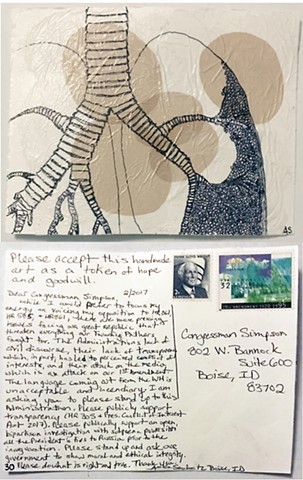 AS
Please accept this handmade
art as a token of hope
and goodwill.
2/2017
Dear Congressman Simpson,
while I would prefer to focus my
energy on voicing my opposition to HR 861,
HR 958, there are more pressing
issues facing our great republic that
threaten everything our Founding Fathers
fought for. The Administration's lack of
civil discourse, their lack of transparency
which, in part, has led to perceived conflict of
interests, and their attack on the media,
which is an attack on our 1st Amendment.
The language coming out from the WH is
unacceptable and incendiary. I am
asking you to please stand up to this
Administration. Please publicly support
transparency (HR 305 = Pres. Tax Disclosure
Act 2017). Please publicly support an open,
bipartisan investigation with subpoena provision
all the President's ties to Russia prior to the
inauguration. Please stand up and ask our
government to show moral and ethical integrity.
Please do what is right and true. Thank you,
Boise, ID
30
32
1995
Congressman Simpson
802 W. Bannock
Suite 600
Boise, ID
83702